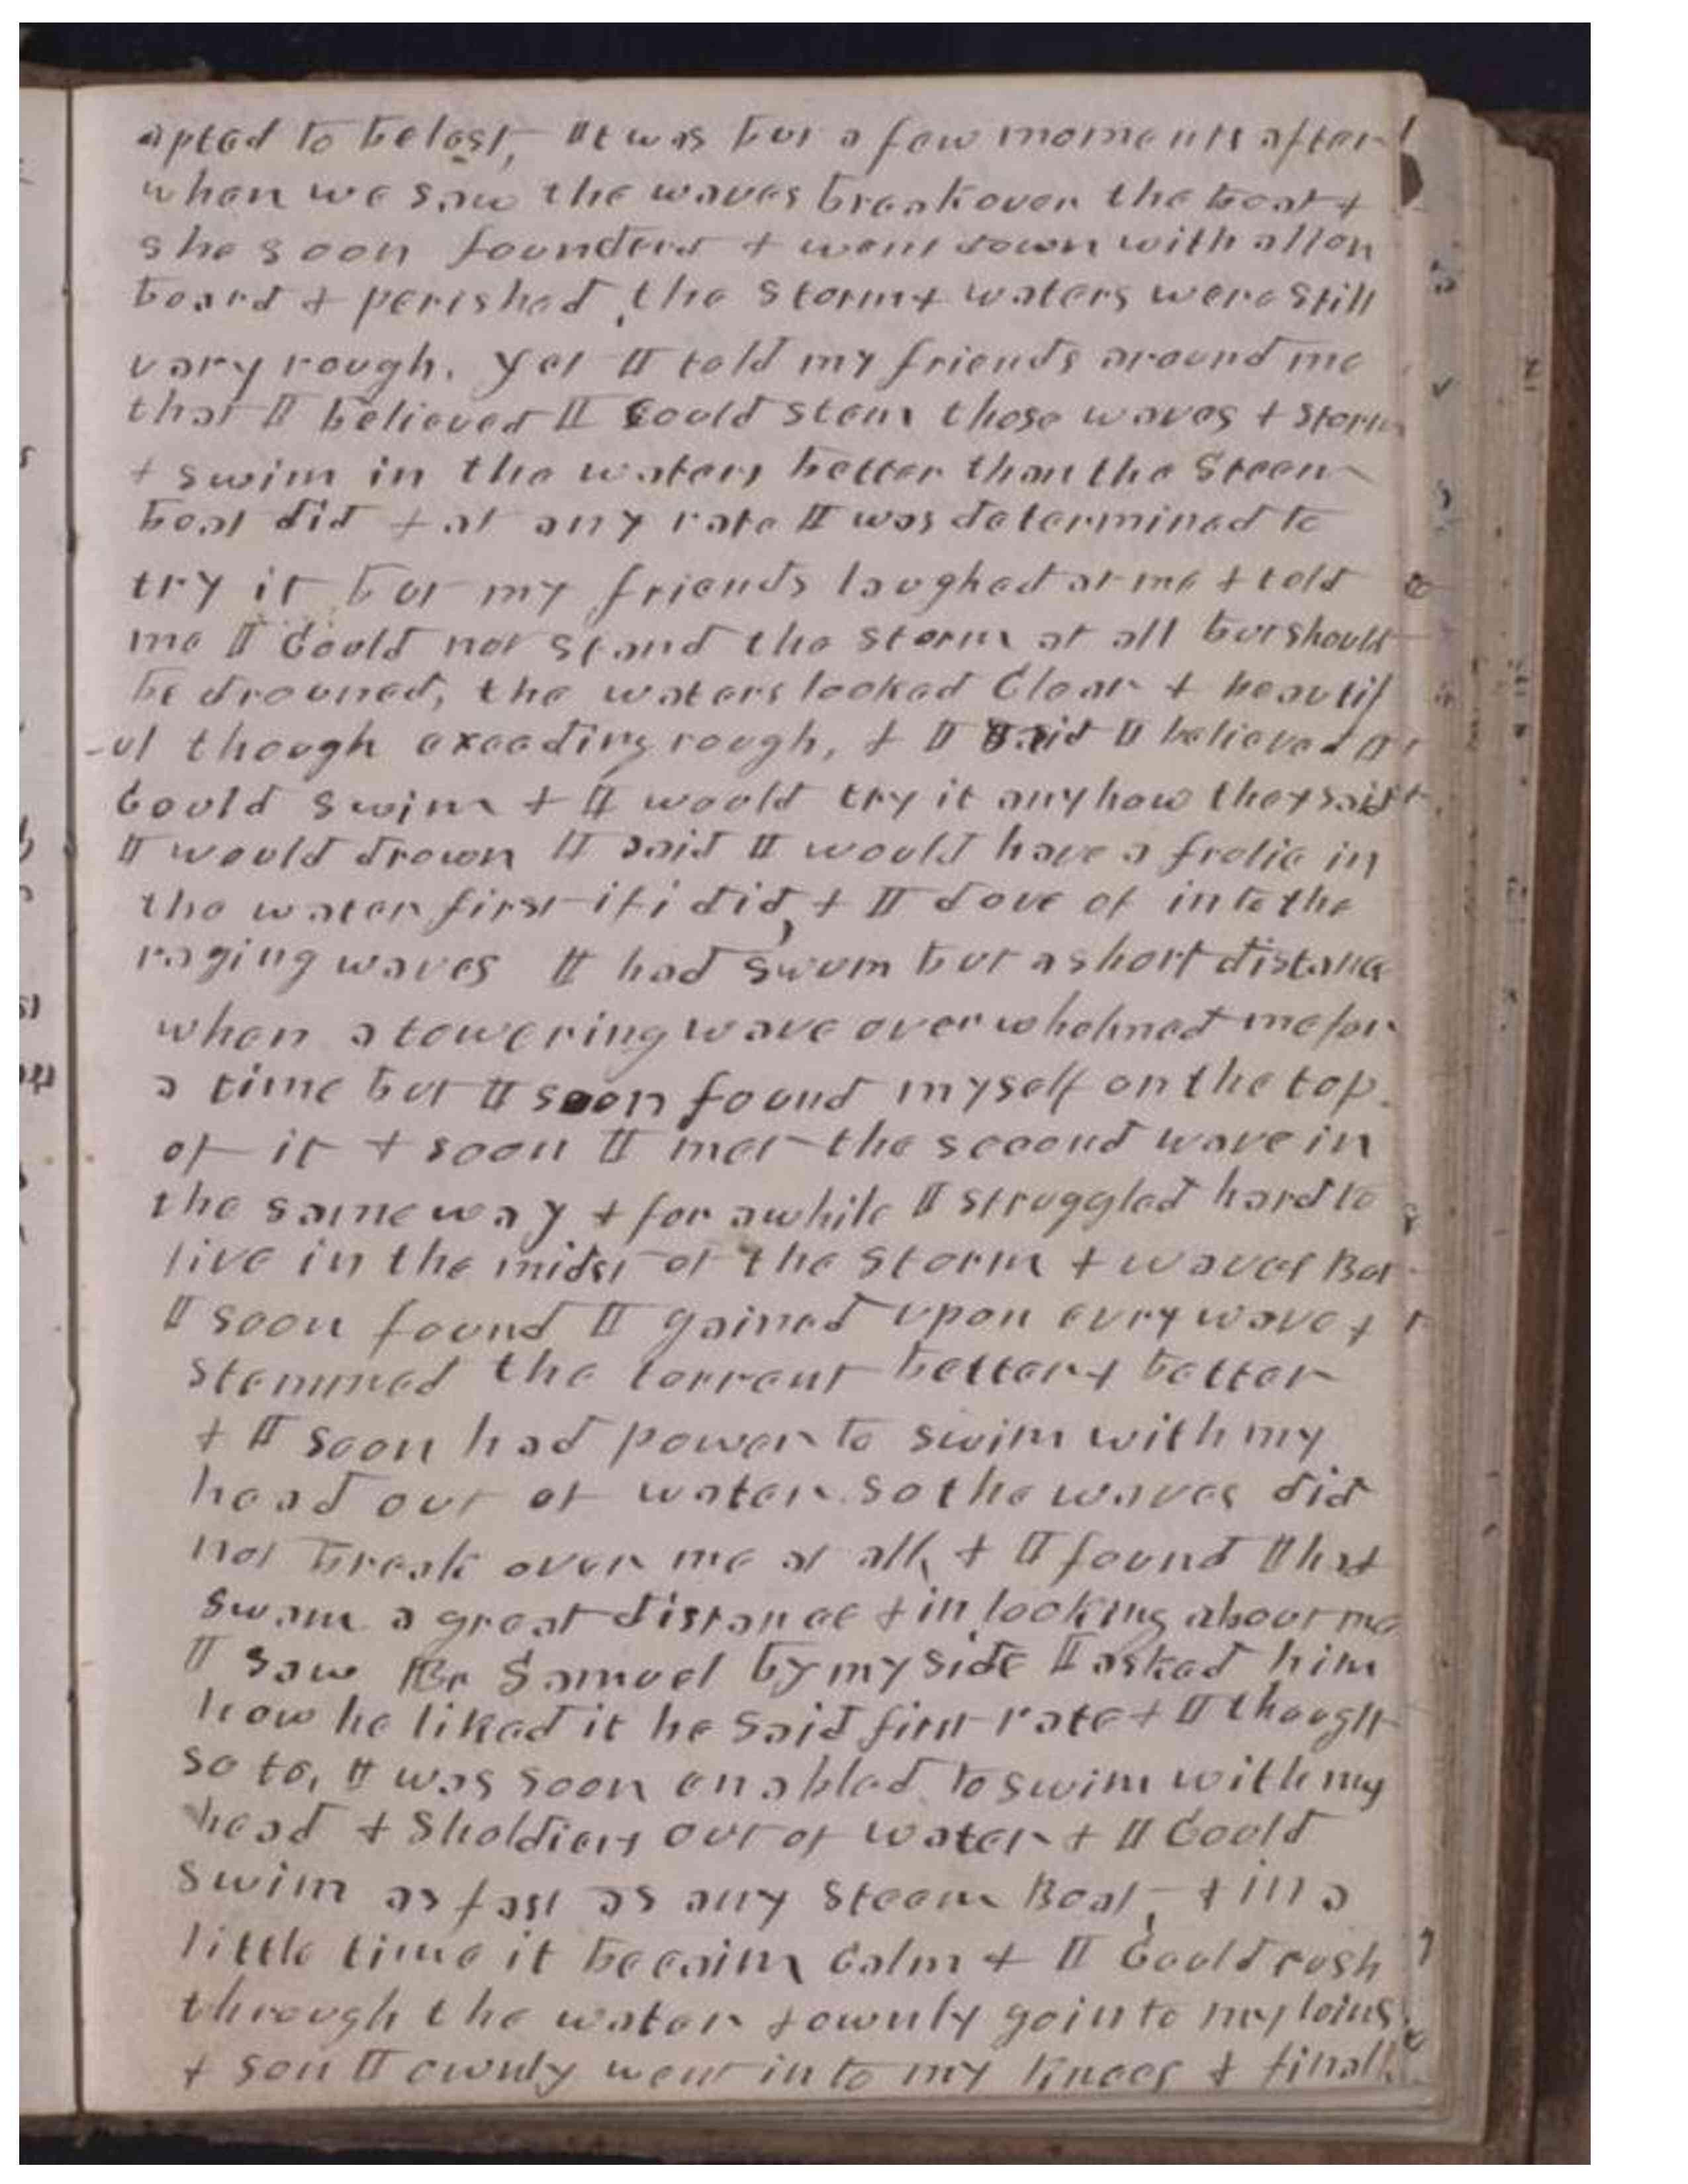 apted to be lost, It was but a few moments after
when we saw the waves break over the boat +
she soon founderd + went down with all on
board + perished, the storm + waters were still
vary rough. yet I told my friends around me
that I believed I Could stem those waves + storm
+ swim in the waters better than the Steem
boat did + at any rate I was determined to
try it but my friends laughed at me + told
me I Could not stand the storm at all but should
be drouned, the waters looked Clear + beautif
-ul though exeeding rough, + I said I believed I
Could swim + I would try it any how they said
I would drown I said I would have a frolic in
the water first if i did, + I dove of into the
raging waves I had swum but a short distance
when a towering wave overwhelmed me for
a time but I soon found myself on the top
of it + soon I met the second wave in
the same way + for awhile I struggled hard to
live in the midst of the storm + waves But
I soon found I gained upon evry wave +
stemmed the torrent better + better
+ I soon had power to swim with my
head out of water so the waves did
not break over me at all, + I found I had
swam a great distance + in looking about me
I saw Br Samuel by my side I asked him
how he liked it he said first rate + I thought
so to, I was soon enabled to swim with my
head + sholdiers out of water + I Could
swim as fast as any Steem Boat, + in a
little time it becaim Calm + I Could rush
through the water + ownly go in to my loins
+ son I ownly went in to my knees + finall